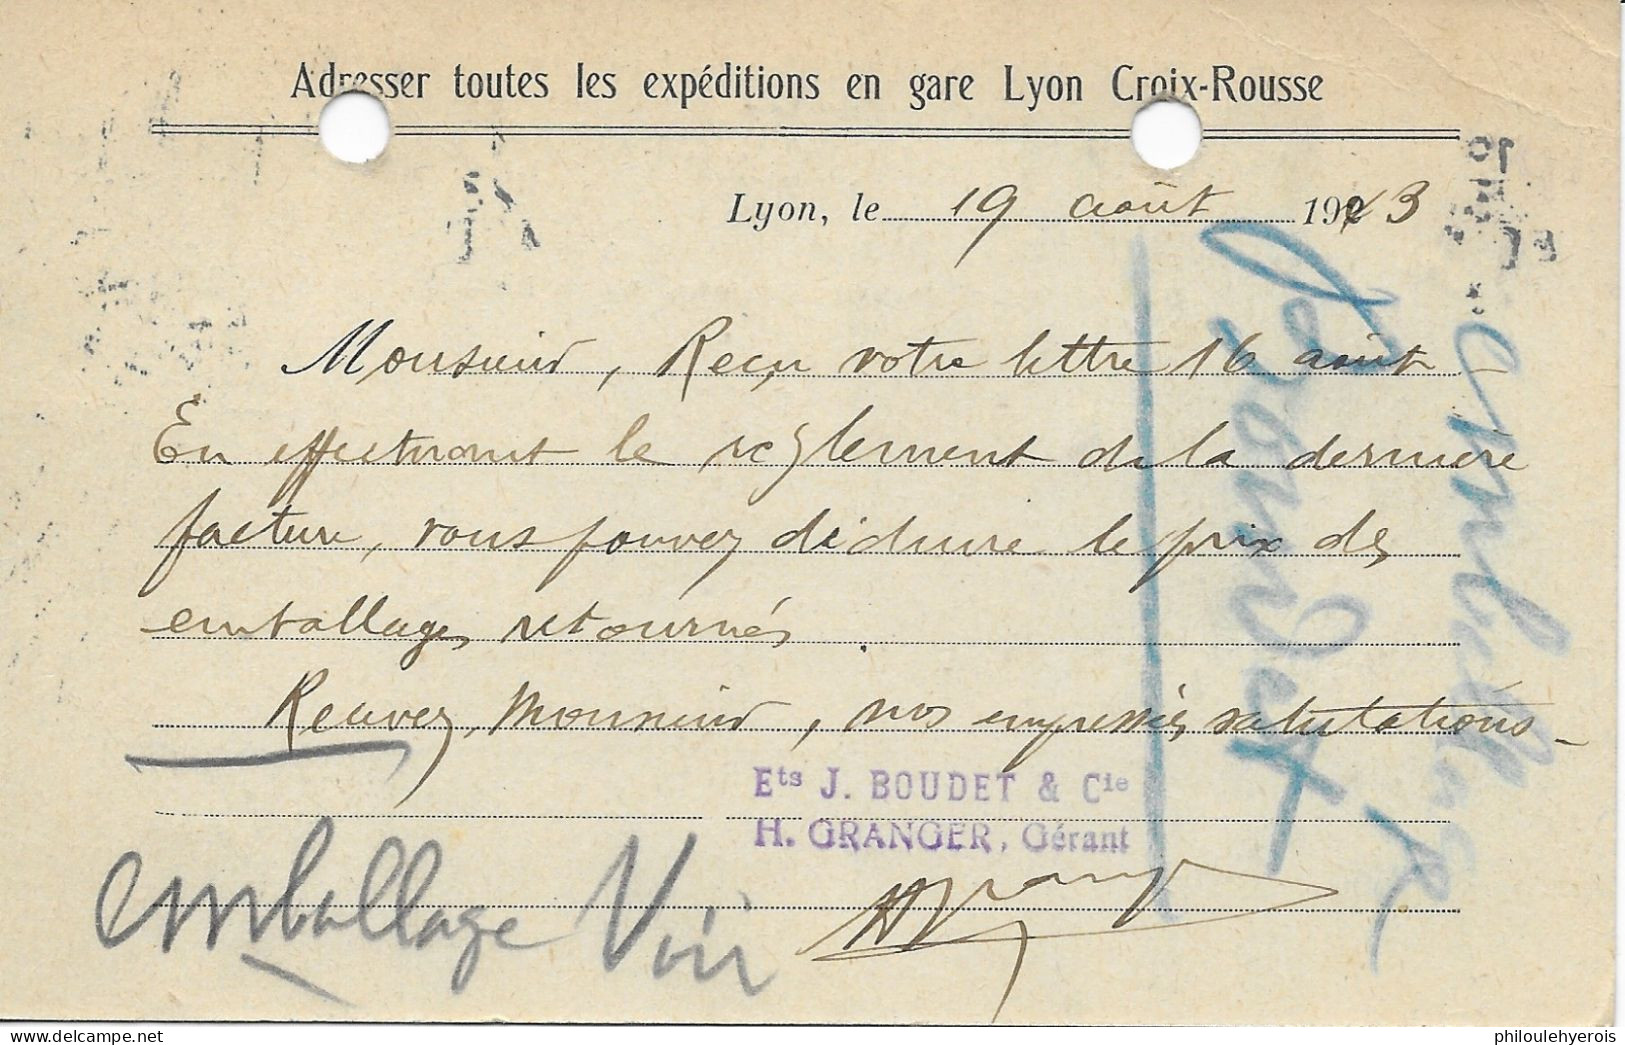 Adresser toutes les expéditions en gare Lyon Croix-Rousse
Lyon, le 19 août 1923
Monsieur, Reçu votre lettre 16 août
En effectuant le règlement de la dernière
facture, vous pouvez déduire le prix des
emballages retournés
Recevez, Monsieur, nos empressées salutations
Ets J. BOUDET & Cie
H. GRANGER, Gérant
H Granger
emballage Voir
Boudet
emballage
philoulehyerois